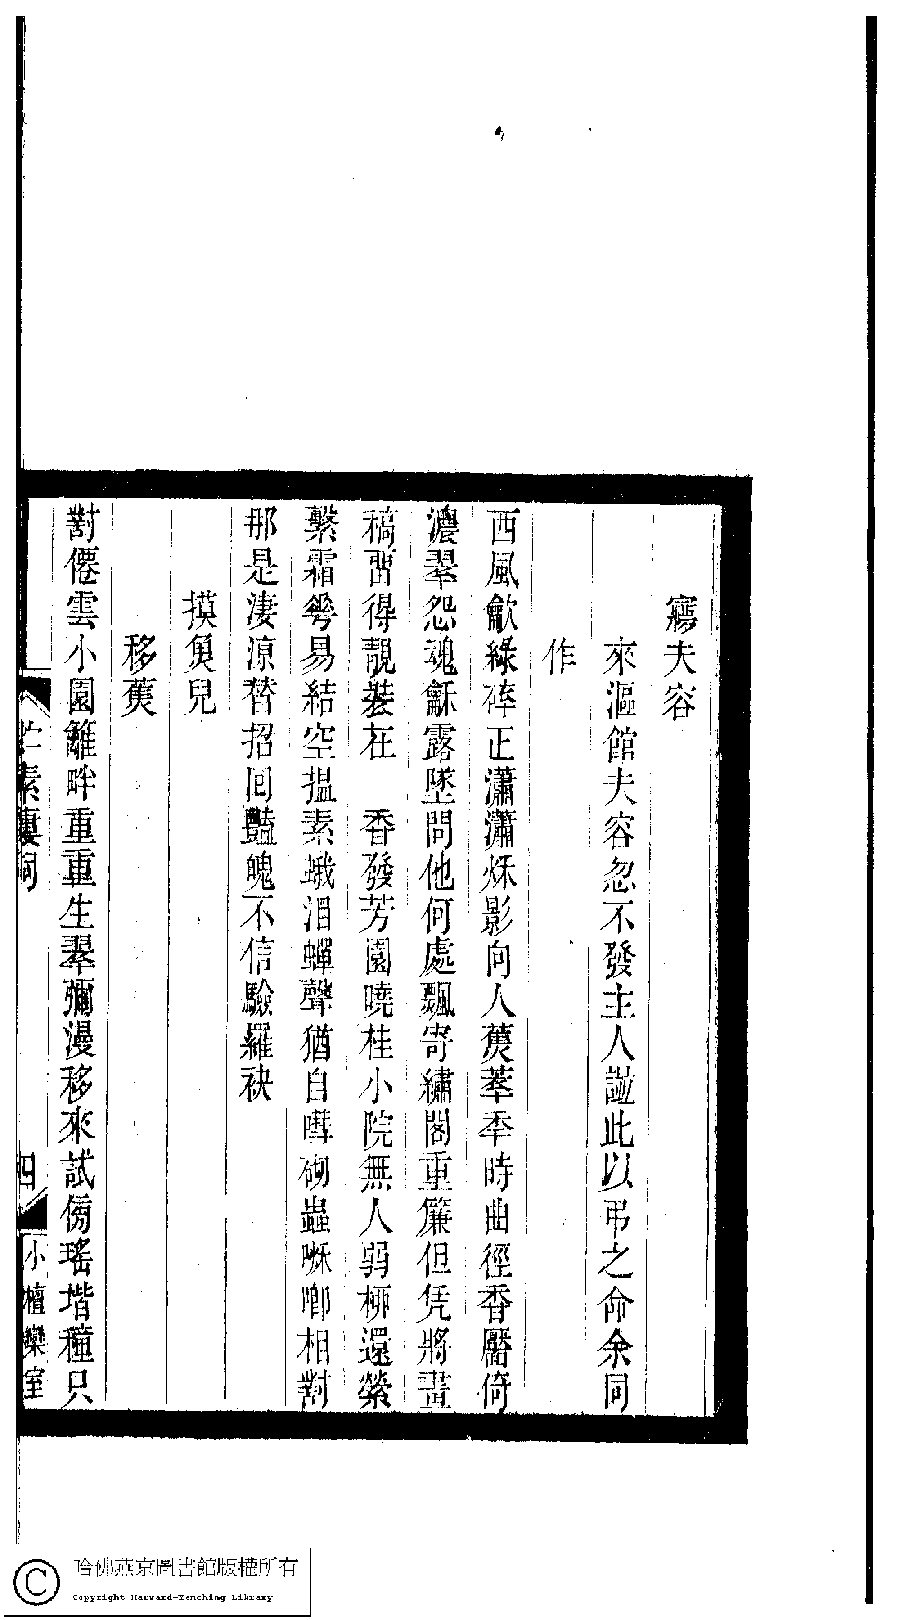 寫夫容
來漚館夫容忽不發主人謚此以弔之命余同
作
西風歙綠碎正瀟瀟秌影向人蕉萃年時曲徑香靨倚
濃翠怨魂龢露墜問他何處飄寄繡閣重簾但凭將畫
稿畱得靚裝在　香發芳園曉桂小院無人弱桺還縈
繫霜華易結空搵素蛾泪蟬聲猶自嘒砌蟲啾唧相對
那是淒涼替招回豔魄不信驗羅袂
摸魚兒
移蕉
對僊雲小園籬畔重重生翠彌漫移來試傍瑤堦種只
芸素廔詞
四
小檀欒室
哈佛燕京圖書館版權所有
Copyright Harvard-Yenching Library